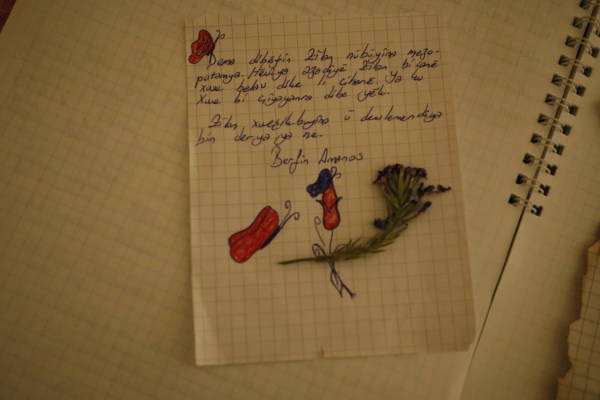 Dema dibêjin Zîlan nûbûyîna mezo-
potamya. Hêvîya azadîyê Zîlan bi canê
xwe bebû dibe li cîhanê ya ku
Xwe bi çîyayanra dibe yek.
Zîlan, xweşikbuyîna û dewlemendîya
bin derya ya ne.
Berfîn Amanos